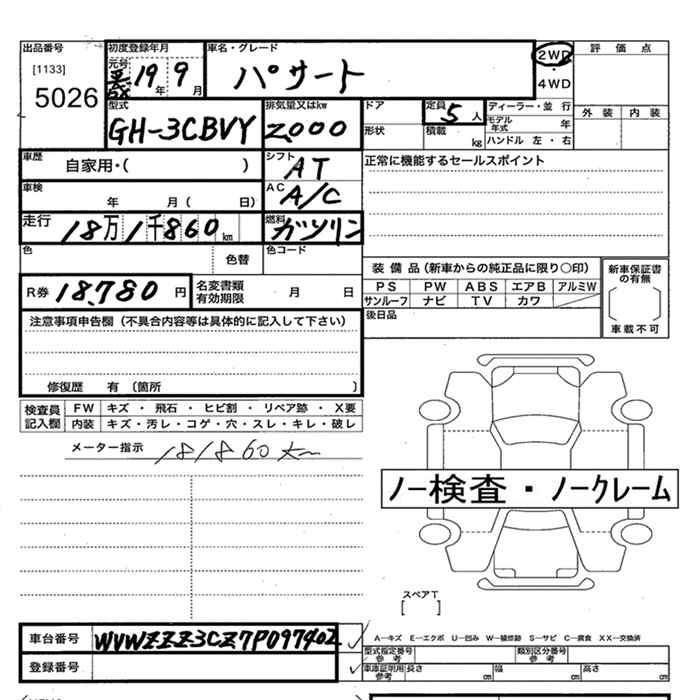 出品番号 初度登録年月 車名・グレード 2WD ・ 4WD 評価点
[1133] 元号 19年 9月 パサート
5026 外装 内装
型式 GH-3CBVY 排気量又はkw 2000 ドア 定員 5人 ディーラー・並行
形状 積載 kg モデル年式 年
ハンドル 左・右
車歴 自家用・( ) シフト AT 正常に機能するセールスポイント
車検 年 月( 日) AC A/C
走行 18万1千860km 燃料 ガソリン
色 色替 色コード
装備品(新車からの純正品に限り○印) 新車保証書の有無
R券 18,780円 名変書類有効期限 月 日 PS PW ABS エアB アルミW
サンルーフ ナビ TV カワ
後日品 車載不可
注意事項申告欄(不具合内容等は具体的に記入して下さい)
修復歴 有〔箇所 〕
検査員記入欄 FW キズ・飛石・ヒビ割・リペア跡・X要
内装 キズ・汚レ・コゲ・穴・スレ・キレ・破レ
メーター指示 181860
ノー検査・ノークレーム
スペアT
[ ]
車台番号 WVWZZZ3CZ7P097402 A−キズ E−エクボ U−凹み W−補修跡 S−サビ C−腐食 XX−交換済
登録番号 型式指定番号 参考 類別区分番号 参考
車庫証明用 参考 長さ cm 幅 cm 高さ cm